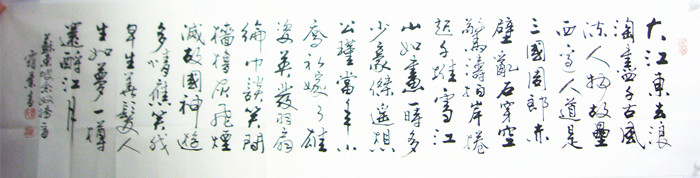 大江東去浪
淘盡千古風
流人物故壘
西邊人道是
三國周郎赤
壁亂石穿空
驚濤拍岸捲
起千堆雪江
山如畫一時多
少豪傑遙想
公瑾當年小
喬初嫁了雄
姿英發羽扇
綸巾談笑間
檣櫓灰飛煙
滅故國神遊
多情應笑我
早生華髮人
生如夢一樽
還酹江月
蘇東坡念奴嬌
書